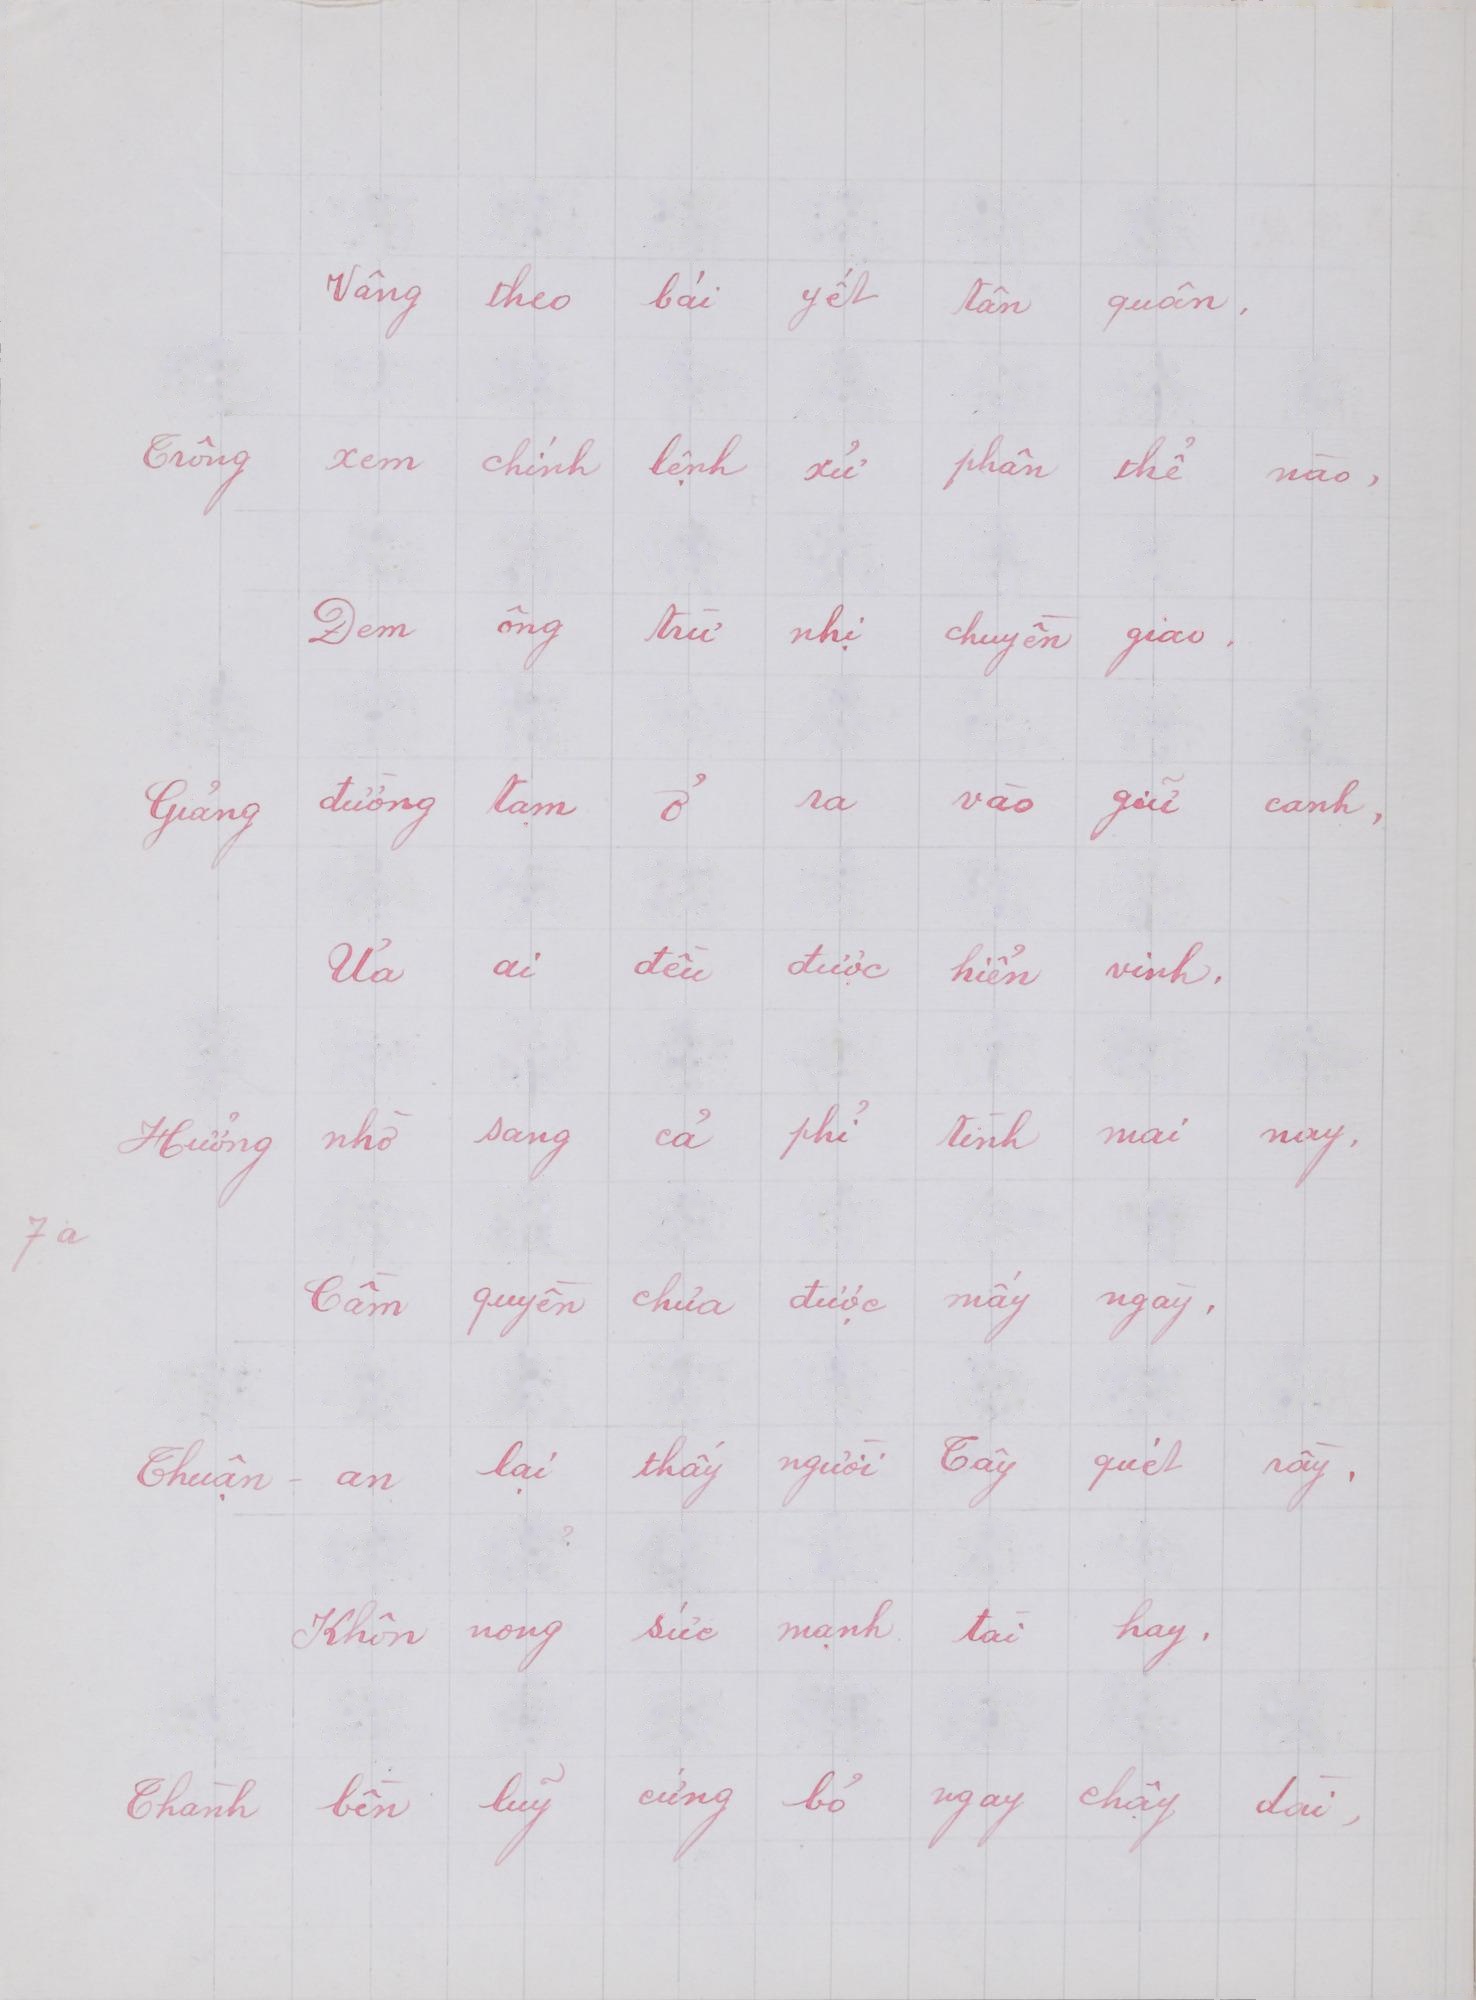 Vâng theo bái yết tân quân.
Trông xem chính lệnh xử phân thể nào,
Đem ông trừ nhị chuyển giao.
Giảng đường tạm ở ra vào giữ canh,
Ủa ai đều được hiển vinh.
Hưởng nhờ sang cả phỉ tình mai nay.
7a
Cầm quyền chưa được mấy ngày.
Thuận-an lại thấy người Tây quét rầy.
Khôn nong sức mạnh tài hay.
Thành bền luỹ cứng bỏ ngay chậy dài,